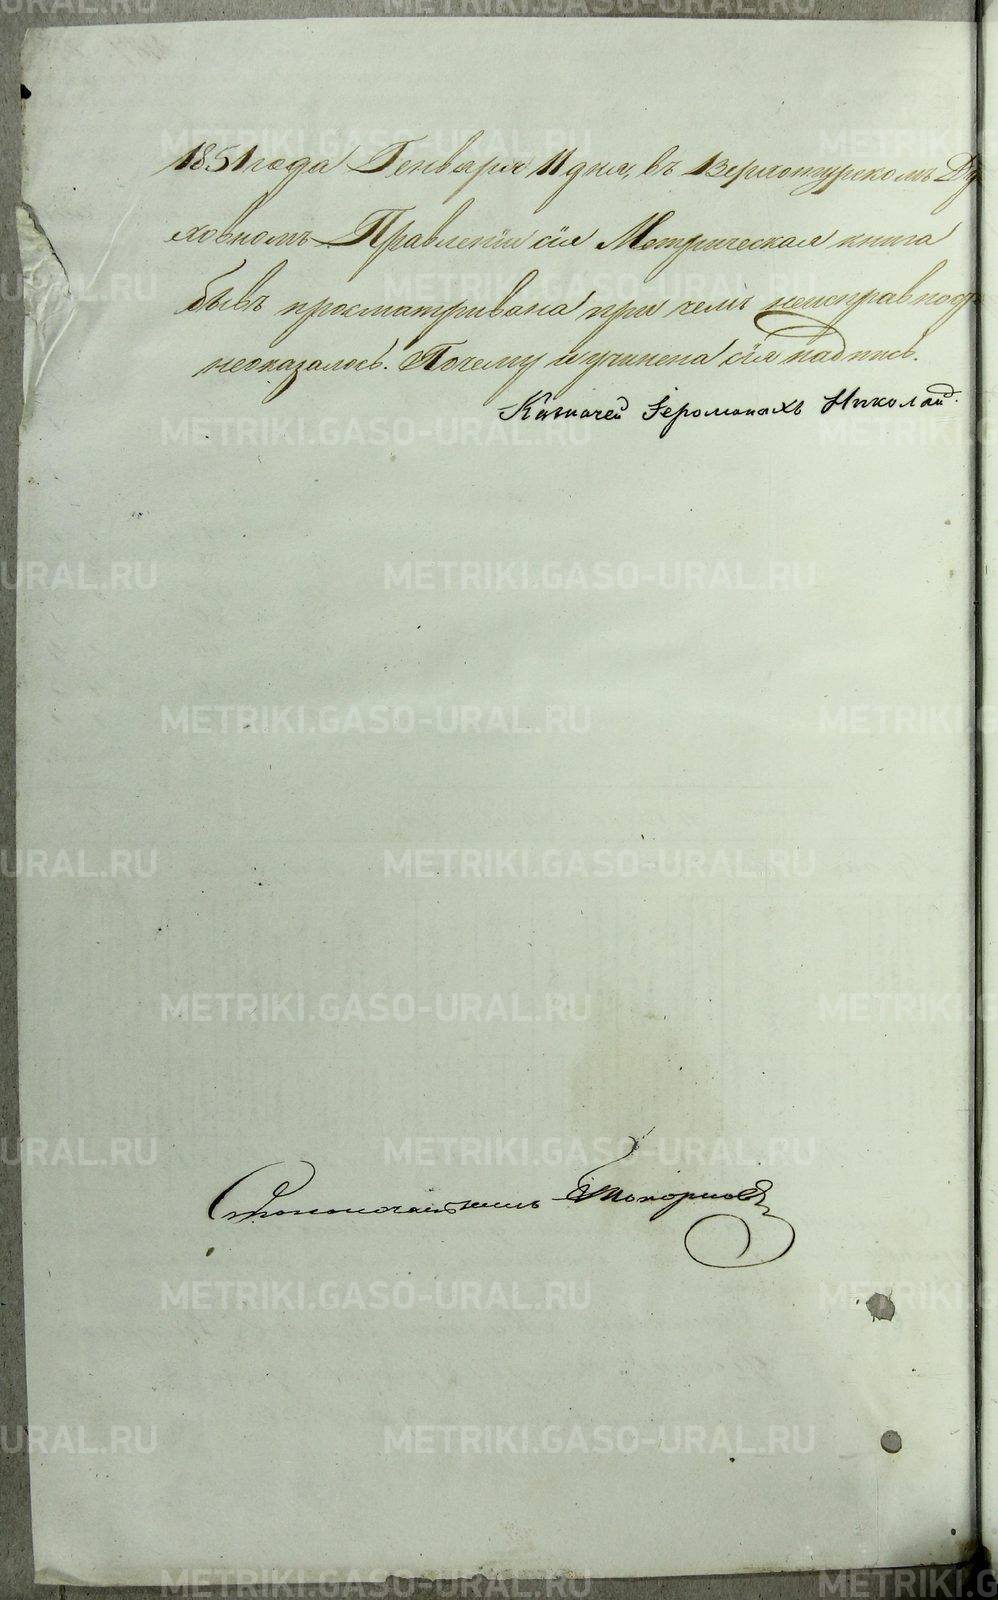 1851 года Генваря 11 дня, въ Верхотурскомъ Ду
ховномъ Правленіи сія Метрическая книга
бывъ просматривана при чемъ неисправност
неоказалось. Почему и учинена сія надпись.
Казначей Іеромонахъ Николай.
Столоначальникъ
METRIKI.GASO-URAL.RU